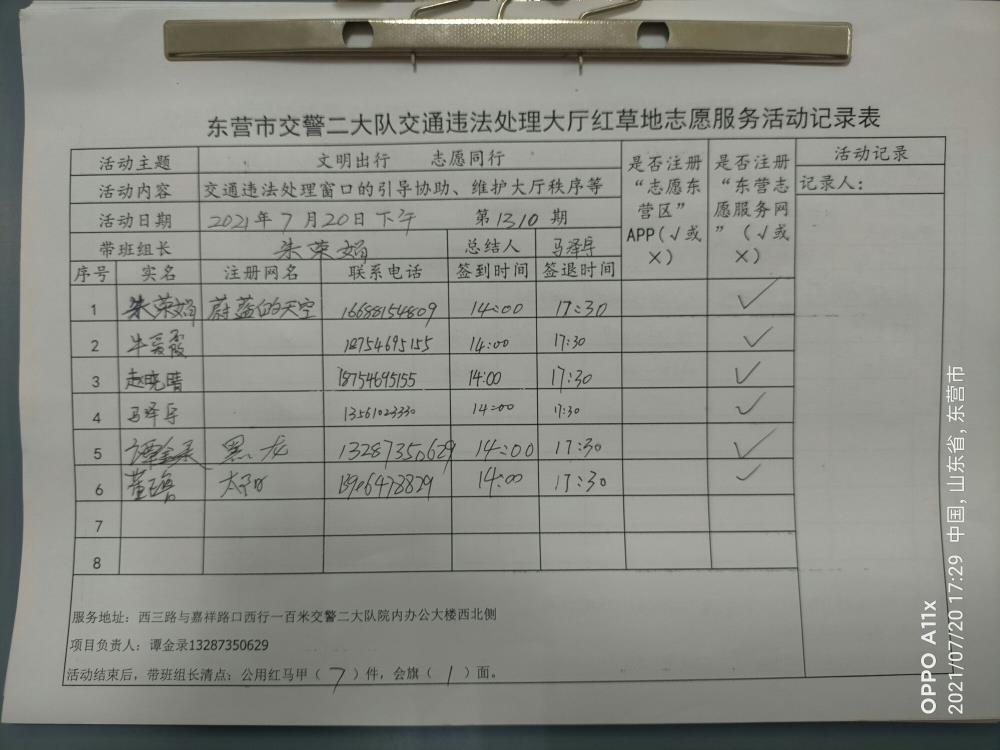 东营市交警二大队交通违法处理大厅红草地志愿服务活动记录表
活动主题 文明出行 志愿同行 是否注册“志愿东营区”APP(√或×) 是否注册“东营志愿服务网”(√或×) 活动记录
活动内容 交通违法处理窗口的引导协助、维护大厅秩序等 记录人：
活动日期 2021年7月20日下午 第1310期
带班组长 朱荣娟 总结人 马泽导
序号 实名 注册网名 联系电话 签到时间 签退时间
1 朱荣娟 蔚蓝的天空 16688154809 14:00 17:30 √
2 牛爱霞 18754695155 14:00 17:30 √
3 赵晓晴 18754695155 14:00 17:30 √
4 马泽导 13561023330 14:00 17:30 √
5 谭金录 黑龙 13287350629 14:00 17:30 √
6 14:00 17:30 √
7
8
服务地址：西三路与嘉祥路口西行一百米交警二大队院内办公大楼西北侧
项目负责人：谭金录13287350629
活动结束后，带班组长清点：公用红马甲（7）件，会旗（1）面。
OPPO A11x
2021/07/20 17:29 中国,山东省,东营市